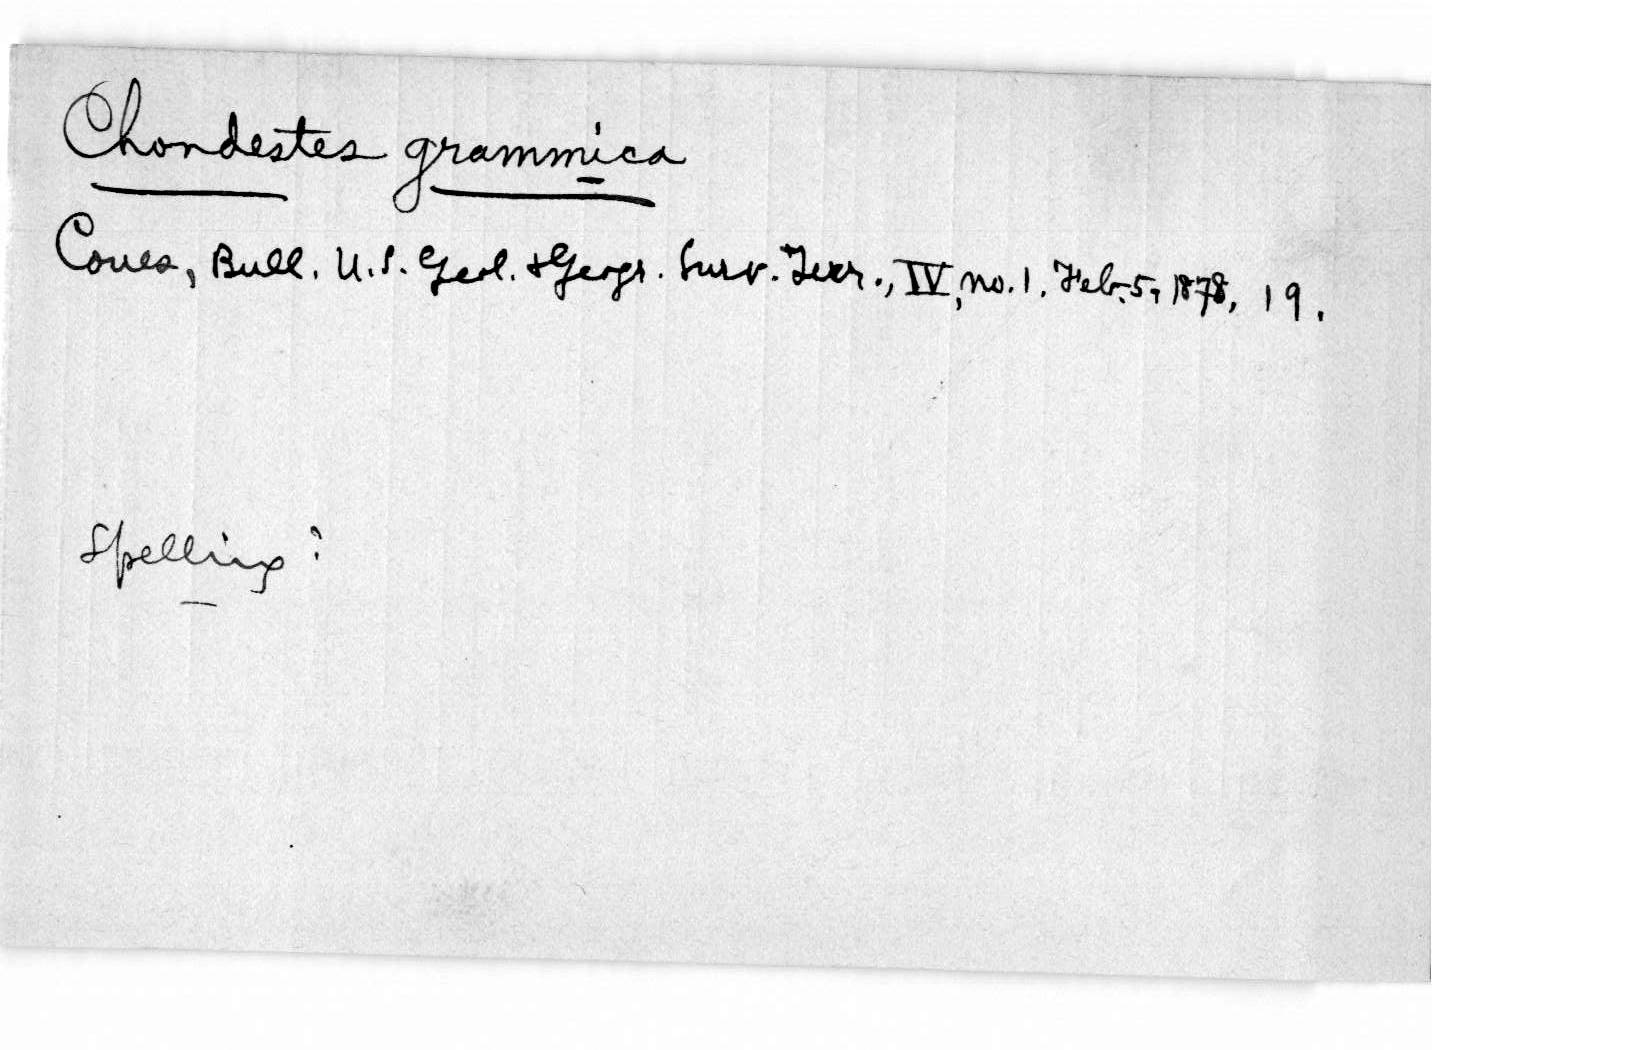 Chondestes grammica
Coues, Bull. U.S. Geol. & Geogr. Surv. Terr., IV, no. 1. Feb. 5, 1878, 19.
Spelling?